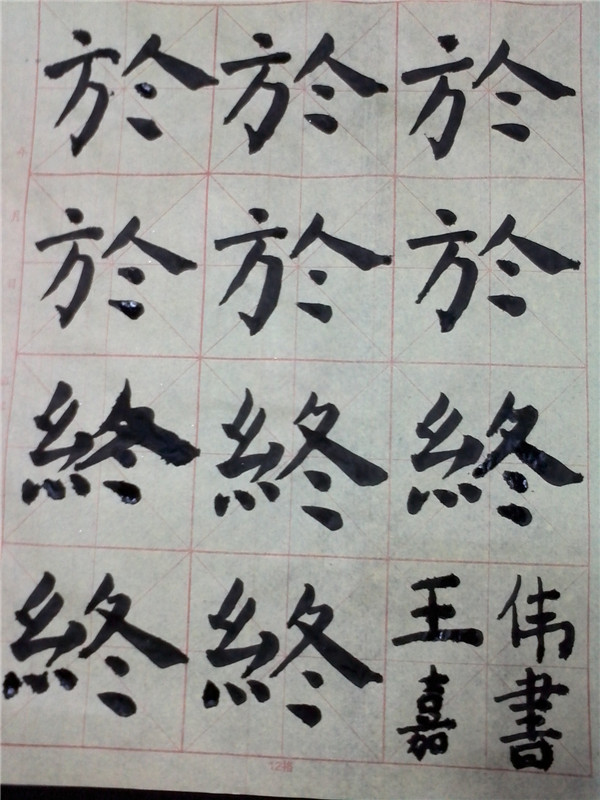 於於於
於於於
終終終
終終
王嘉
伟書
12格